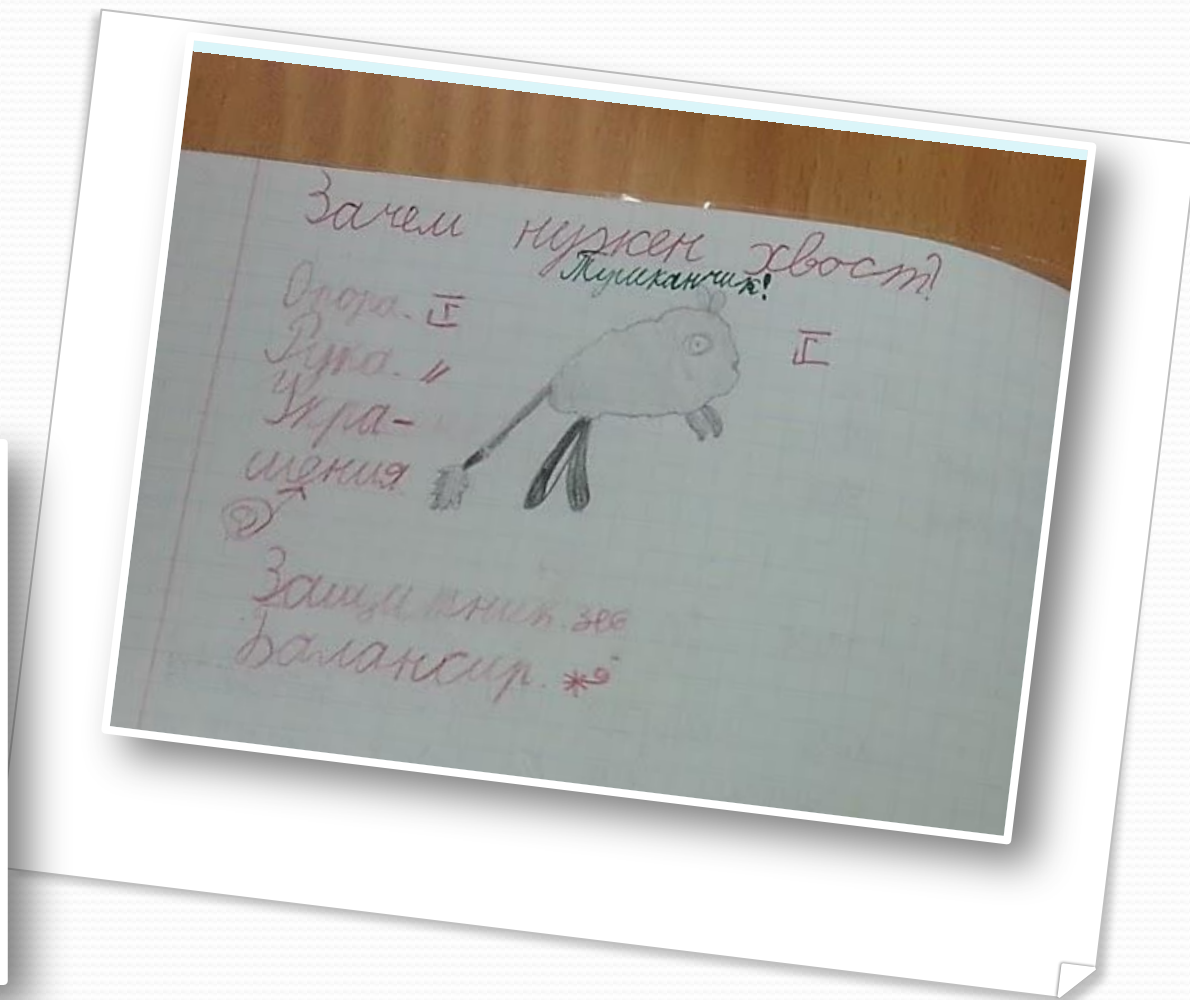 Зачем нужен хвост?
Тушканчик!
Опора. I
I
Рука. "
Укра-
шения
Защитник
Балансир.